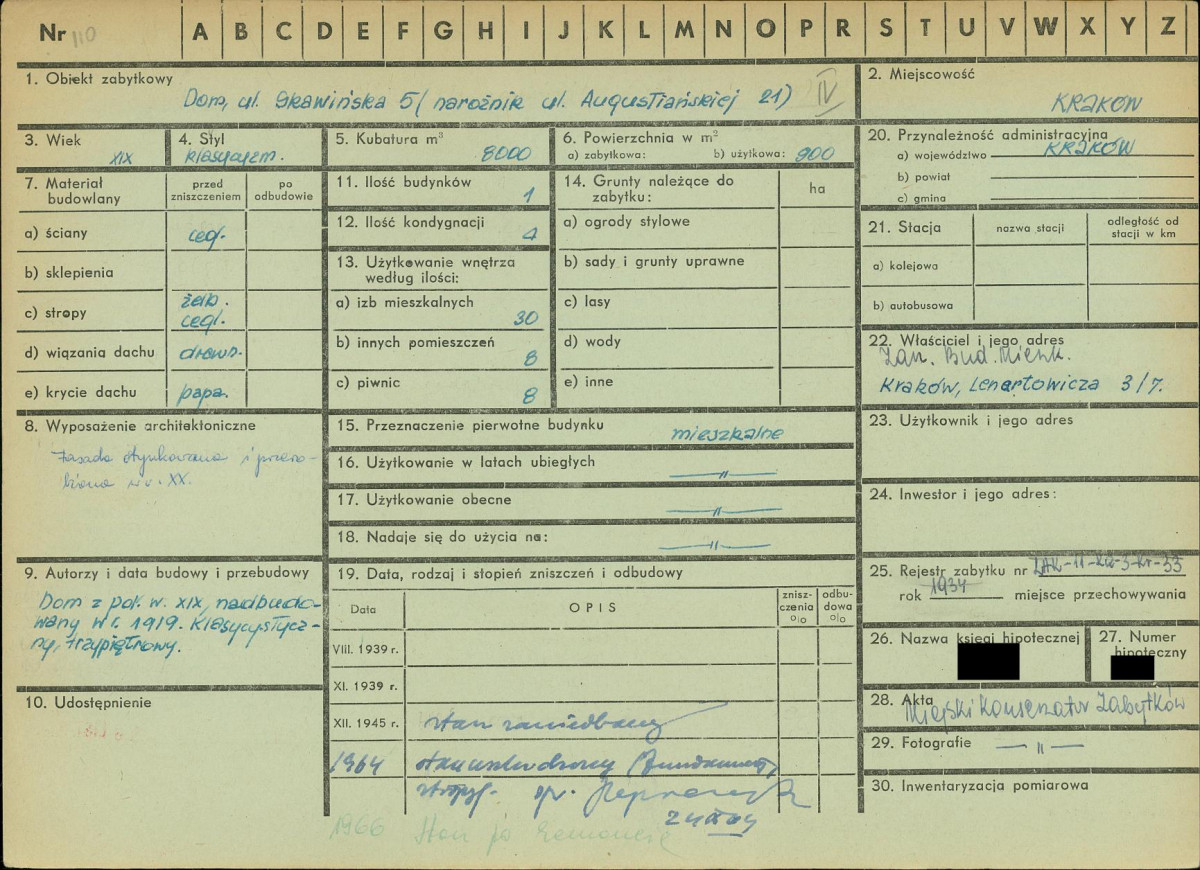 Nr 110 A B C D E F G H I J K L M N O P R S T U V W X Y Z
1. Obiekt zabytkowy
Dom, ul. Skawińska 5 (narożnik ul. Augustiańskiej 21) IV
2. Miejscowość
KRAKÓW
3. Wiek
XIX
4. Styl
klasycyzm.
5. Kubatura m³
8000
6. Powierzchnia w m²
a) zabytkowa: b) użytkowa: 900
20. Przynależność administracyjna
a) województwo KRAKÓW
b) powiat
c) gmina
7. Materiał budowlany
przed zniszczeniem
po odbudowie
a) ściany cegł.
b) sklepienia
c) stropy żelb. cegł.
d) wiązania dachu drewn.
e) krycie dachu papa.
11. Ilość budynków 1
12. Ilość kondygnacji 4
13. Użytkowanie wnętrza według ilości:
a) izb mieszkalnych 30
b) innych pomieszczeń 8
c) piwnic 8
14. Grunty należące do zabytku: ha
a) ogrody stylowe
b) sady i grunty uprawne
c) lasy
d) wody
e) inne
21. Stacja
nazwa stacji
odległość od stacji w km
a) kolejowa
b) autobusowa
22. Właściciel i jego adres
Zarz. Bud. Mieszk.
Kraków, Lenartowicza 3/7.
8. Wyposażenie architektoniczne
Fasada otynkowana i przero-
biona w w. XX.
15. Przeznaczenie pierwotne budynku mieszkalne
16. Użytkowanie w latach ubiegłych —"—
17. Użytkowanie obecne —"—
18. Nadaje się do użycia na: —"—
23. Użytkownik i jego adres
24. Inwestor i jego adres:
9. Autorzy i data budowy i przebudowy
Dom z poł. w. XIX, nadbudo-
wany w r. 1919. Klasycystycz-
ny, trzypiętrowy.
19. Data, rodzaj i stopień zniszczeń i odbudowy
Data
OPIS
zniszczenia %
odbudowa %
VIII. 1939 r.
XI. 1939 r.
XII. 1945 r. stan zaniedbany
1964
stropy.
1966 Stan po remoncie
25. Rejestr zabytku nr
rok 1934 miejsce przechowywania
26. Nazwa księgi hipotecznej
27. Numer hipoteczny
10. Udostępnienie
28. Akta
Miejski Konserwator Zabytków
29. Fotografie —"—
30. Inwentaryzacja pomiarowa